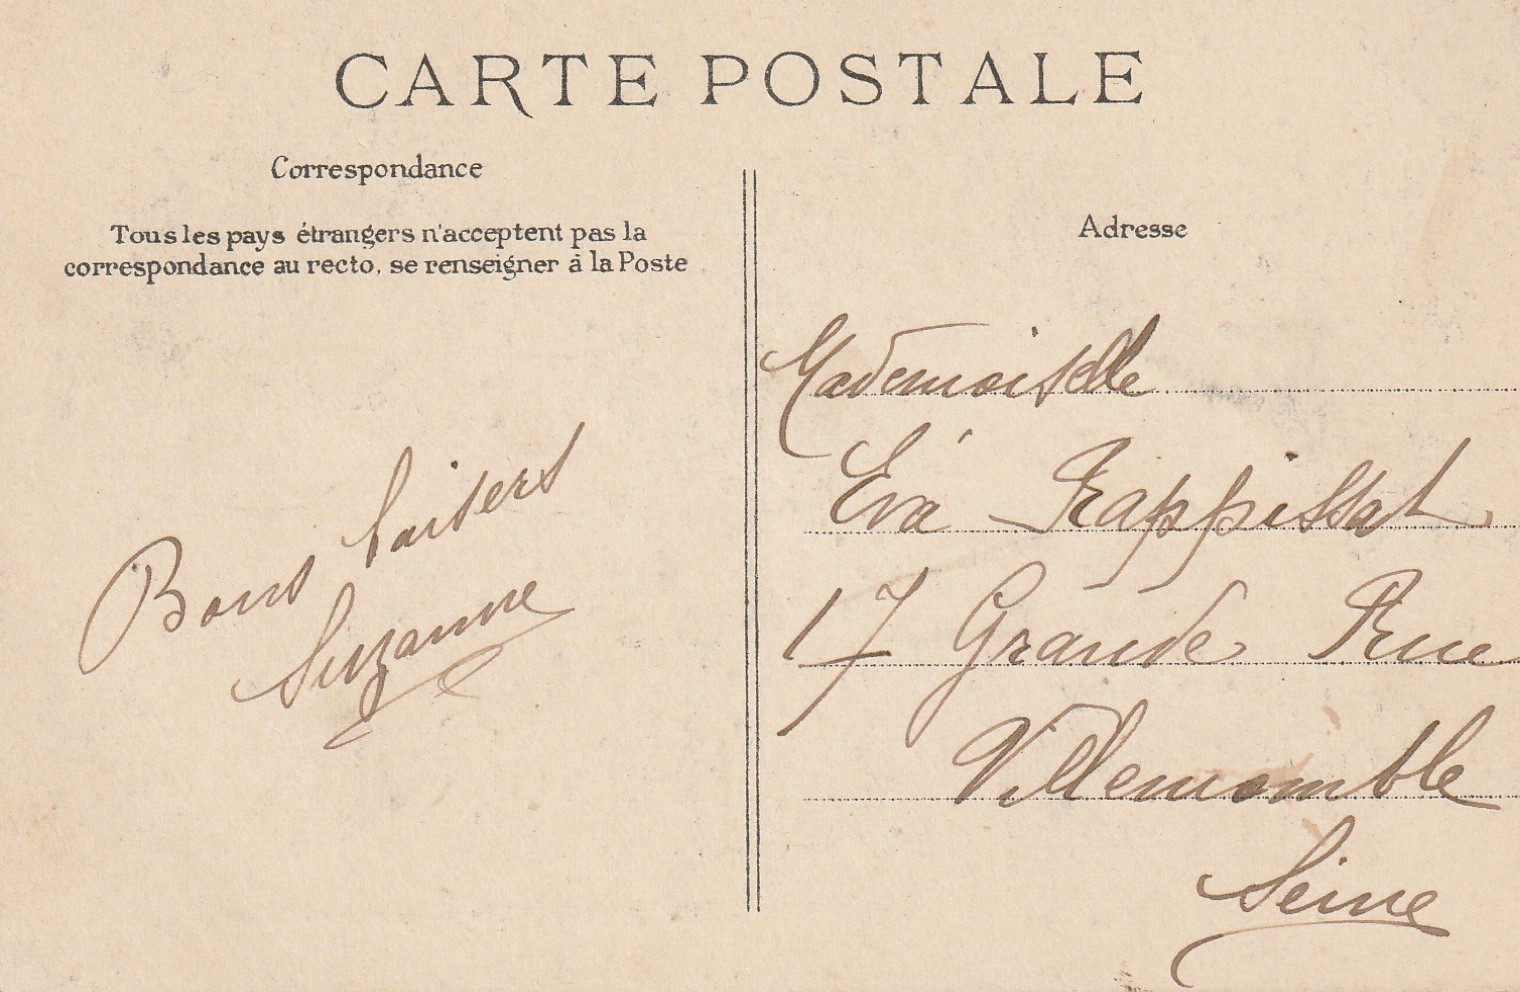 CARTE POSTALE
Correspondance
Tous les pays étrangers n'acceptent pas la
correspondance au recto, se renseigner à la Poste
Bons baisers
Suzanne
Adresse
Mademoiselle
Eva Rappissat
17 Grande Rue
Villemomble
Seine